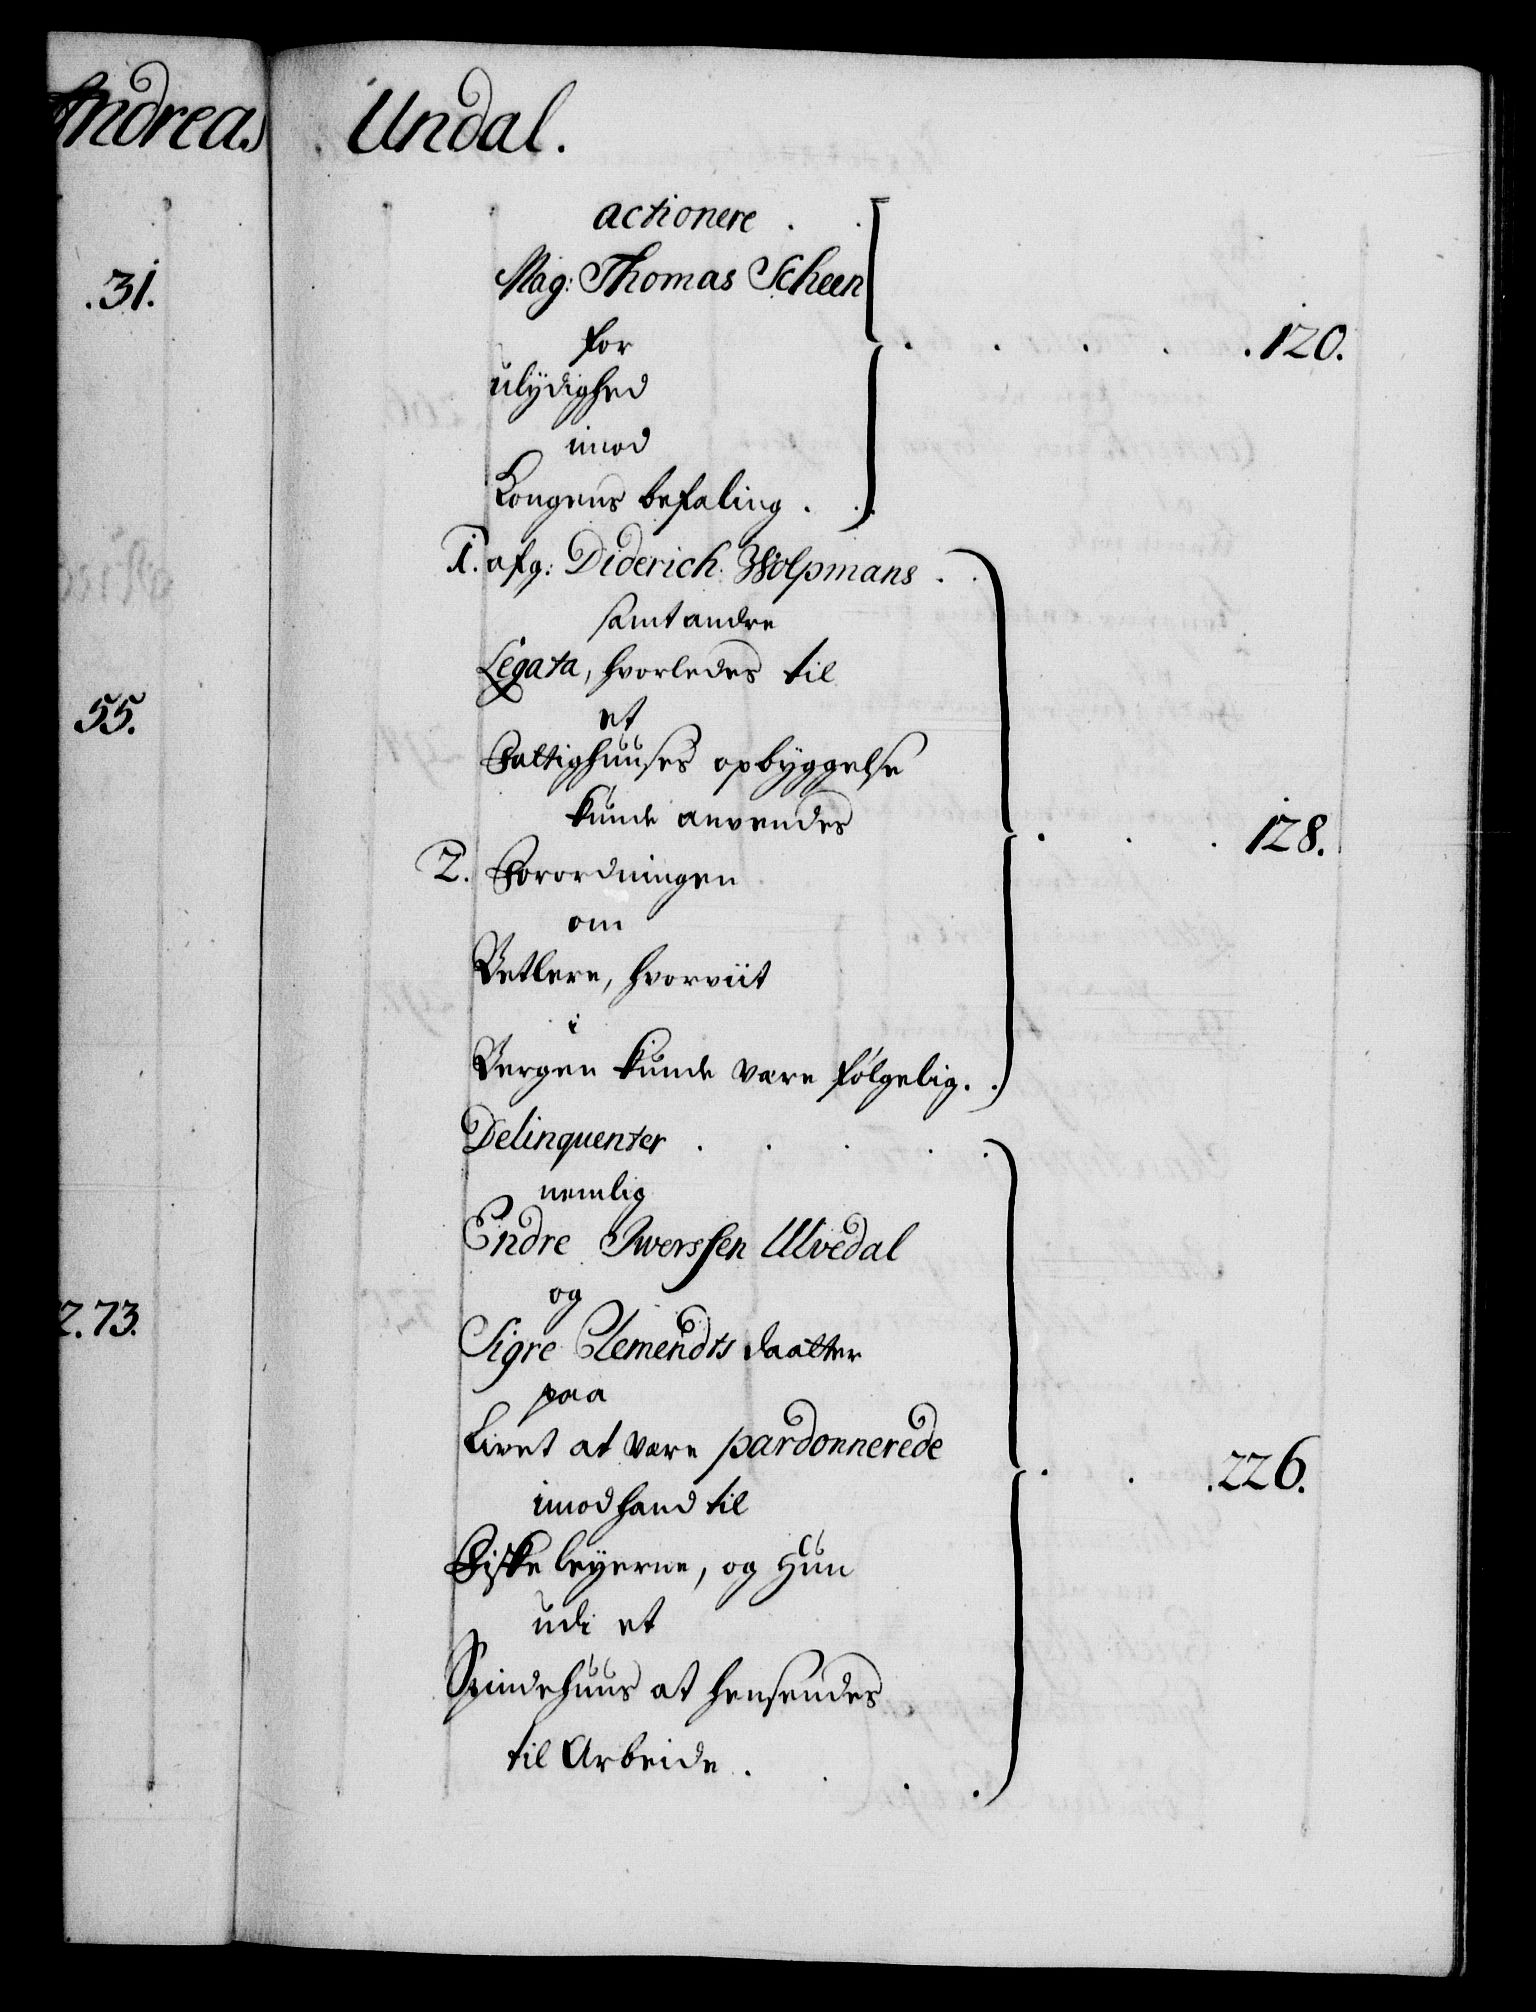 Andreas
31.
55.
2.73.
Undal.
actionere
Mag: Thomas Scheen
for
ulydighed
imod
Kongens befaling
120.
1. afg: Diderich Wolpmans
samt andre
Legata, hvorledes til
et
Fattighuuses opbyggelse
kunde anvendes
2. Forordningen
om
Betlere, hvorviit
i
Bergen kunde være følgelig
128.
Delinquenter
nemlig
Endre Iwerssen Ulvedal
og
Sigre Clemendts daatter
paa
Livet at være pardonnerede
imod hand til
Fiske leyerne, og Hun
udi et
Spindehuus at hensendes
til Arbeide
226.